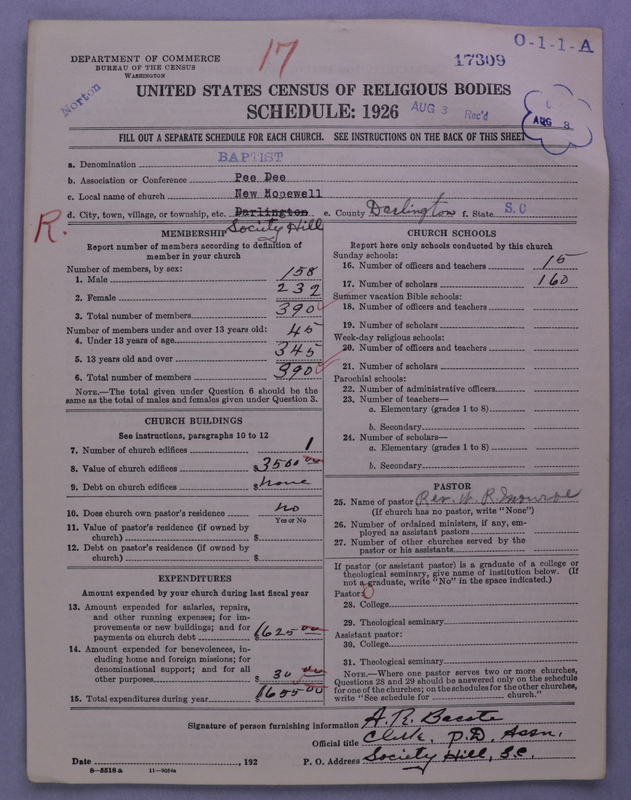 17
17309
O-1-1-A
DEPARTMENT OF COMMERCE
BUREAU OF THE CENSUS
WASHINGTON
Norton
UNITED STATES CENSUS OF RELIGIOUS BODIES
SCHEDULE: 1926
AUG 3 Rec'd
AUG 3
FILL OUT A SEPARATE SCHEDULE FOR EACH CHURCH. SEE INSTRUCTIONS ON THE BACK OF THIS SHEET
a. Denomination BAPTIST
b. Association or Conference Pee Dee
c. Local name of church New Hopewell
d. City, town, village, or township, etc. Darlington e. County Darlington f. State S.C
R.
Society Hill
MEMBERSHIP
Report number of members according to definition of
member in your church
Number of members, by sex:
1. Male 158
2. Female 232
3. Total number of members 390
Number of members under and over 13 years old:
4. Under 13 years of age 45
5. 13 years old and over 345
6. Total number of members 390
NOTE.—The total given under Question 6 should be the
same as the total of males and females given under Question 3.
CHURCH BUILDINGS
See instructions, paragraphs 10 to 12
7. Number of church edifices 1
8. Value of church edifices $3500 00
9. Debt on church edifices $ none
10. Does church own pastor's residence? no
Yes or No
11. Value of pastor's residence (if owned by
church) $
12. Debt on pastor's residence (if owned by
church) $
EXPENDITURES
Amount expended by your church during last fiscal year
13. Amount expended for salaries, repairs,
and other running expenses; for im-
provements or new buildings; and for
payments on church debt $1625 00
14. Amount expended for benevolences, in-
cluding home and foreign missions; for
denominational support; and for all
other purposes $ 30 00
15. Total expenditures during year $1655 00
CHURCH SCHOOLS
Report here only schools conducted by this church
Sunday schools:
16. Number of officers and teachers 15
17. Number of scholars 160
Summer vacation Bible schools:
18. Number of officers and teachers
19. Number of scholars
Week-day religious schools:
20. Number of officers and teachers
21. Number of scholars
Parochial schools:
22. Number of administrative officers
23. Number of teachers—
a. Elementary (grades 1 to 8)
b. Secondary
24. Number of scholars—
a. Elementary (grades 1 to 8)
b. Secondary
PASTOR
25. Name of pastor Rev. W. R. Monroe
(If church has no pastor, write "None")
26. Number of ordained ministers, if any, em-
ployed as assistant pastors
27. Number of other churches served by the
pastor or his assistants
If pastor (or assistant pastor) is a graduate of a college or
theological seminary, give name of institution below. (If
not a graduate, write "No" in the space indicated.)
Pastor: 0
28. College
29. Theological seminary
Assistant pastor:
30. College
31. Theological seminary
NOTE.—Where one pastor serves two or more churches,
Questions 28 and 29 should be answered only on the schedule
for one of the churches; on the schedules for the other churches,
write "See schedule for church."
Signature of person furnishing information A. R. Bacote
Official title Clerk, P.D. Assn.
Date , 192 P. O. Address Society Hill, S.C.
8—5518 a 11—9054a